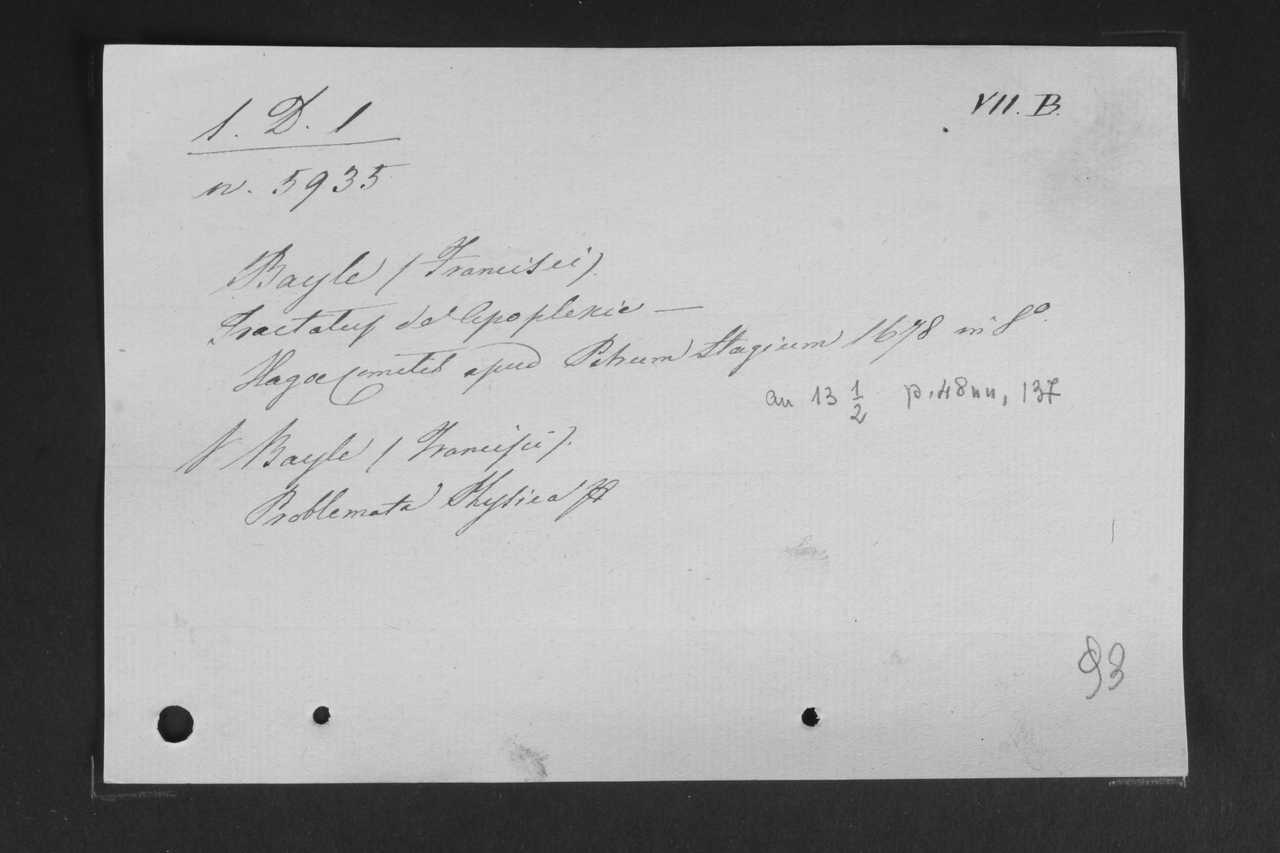 1. D. 1
VII. B.
n. 5935
Bayle (Francisci).
Tractatus de Apoplexia —
Hagae Comitis apud Petrum Hagium 1678 in 8º.
au 13 1/2 p. 48 nn, 137
V Bayle (Francisci).
Problemata Physica
93